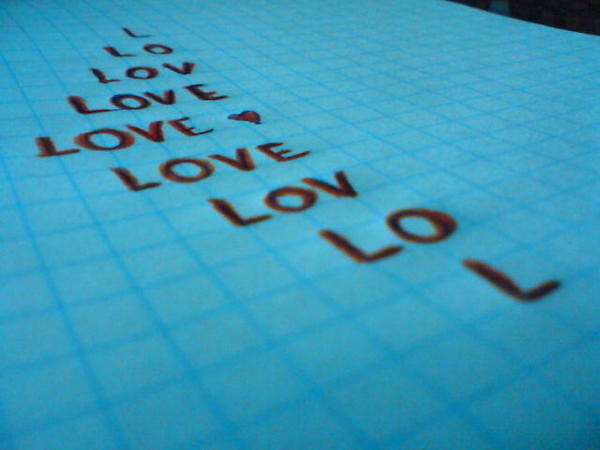 L
LO
LOV
LOVE
LOVE ♥
LOVE
LOV
LO
L